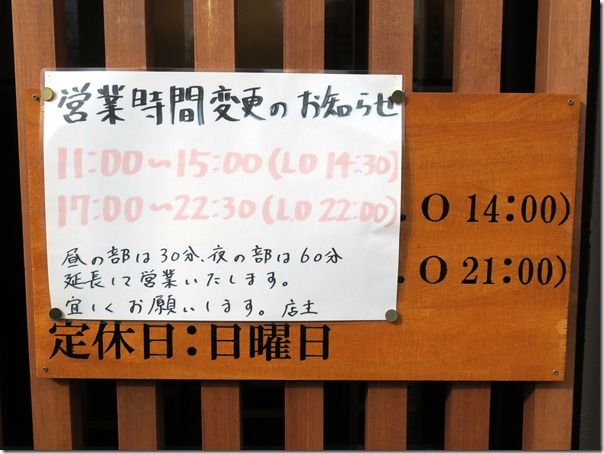 営業時間変更のお知らせ
11:00〜15:00(LO 14:30)
17:00〜22:30(LO 22:00)
昼の部は30分、夜の部は60分
延長して営業いたします。
宜しくお願いします。 店主
. O 14:00)
. O 21:00)
定休日:日曜日